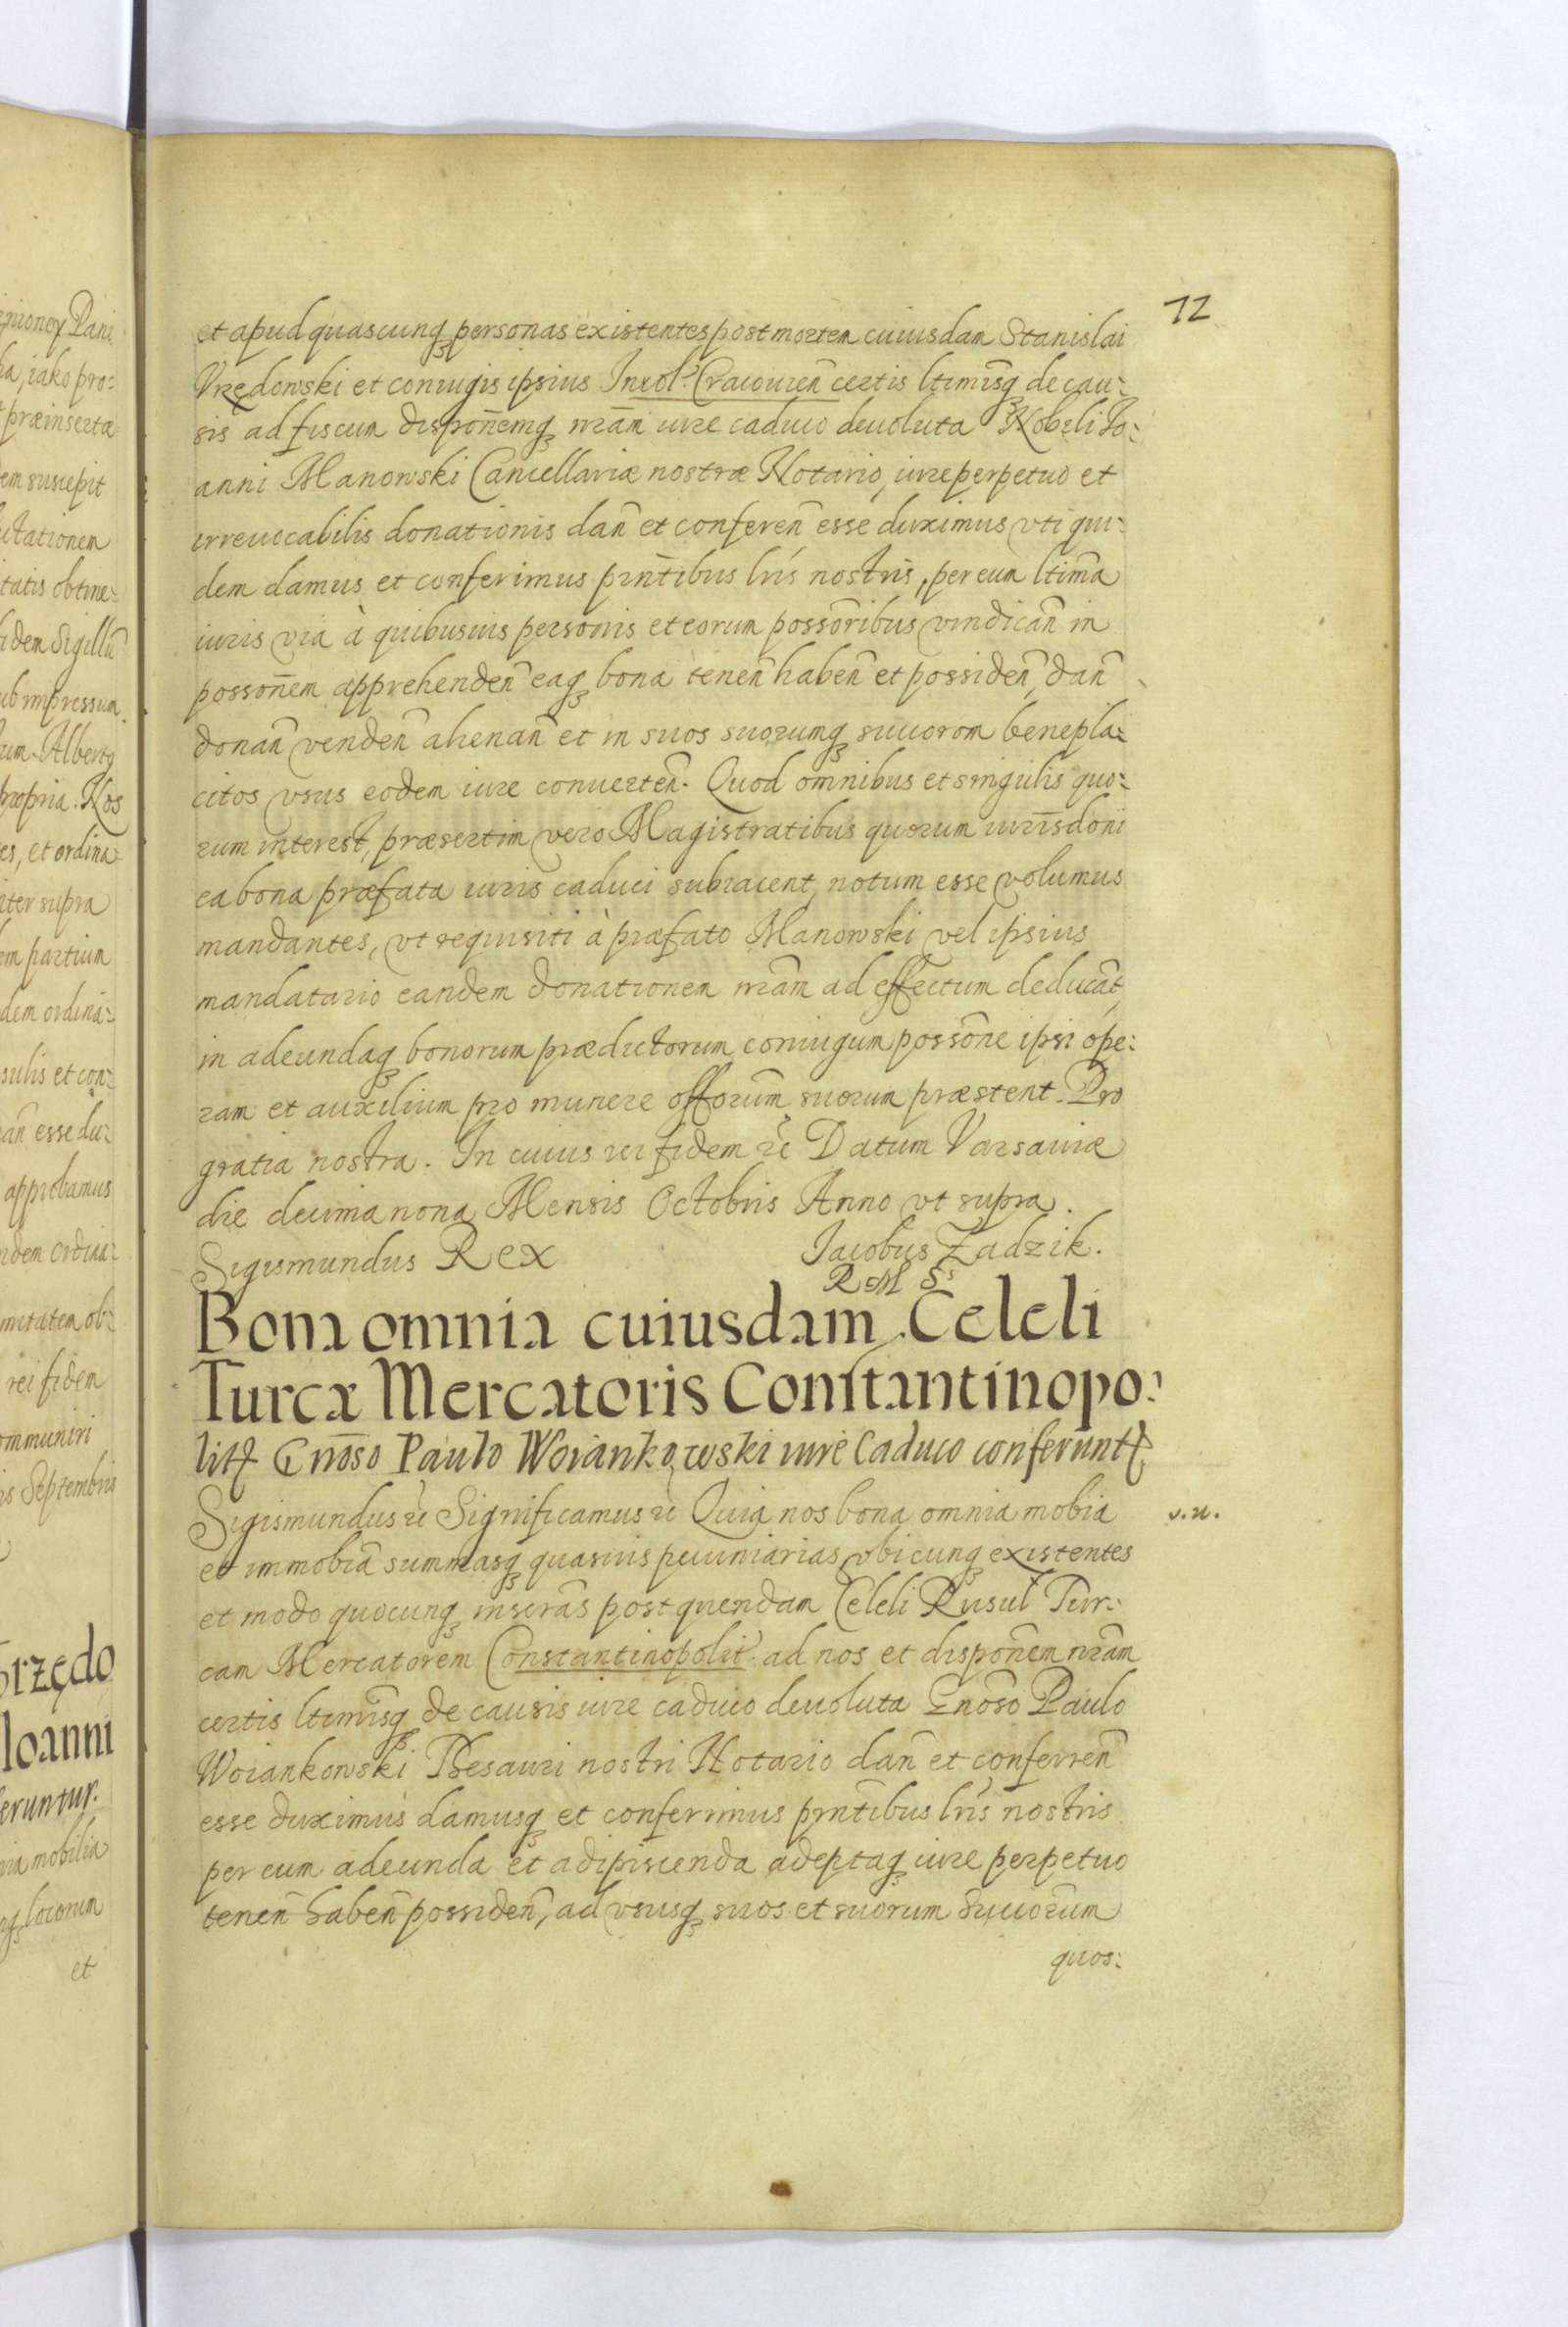 72
et apud quascunq₃ personas existentes post mortem cuiusdam Stanislai
Vrzędowski et coniugis ipsius Incol: Cracouien̄ certis ltimisq₃ de cau:
sis ad fiscum dispon̄emq₃ nr̄am iure caduco deuoluta Nobili Io:
anni Manowski Cancellariæ nostræ Notario, iure perpetuo et
irreuocabilis donationis dan̄ et conferen̄ esse duximus vti qui:
dem damus et conferimus pn̄tibus lrīs nostris, per eum ltima̅
iuris via à quibusuis personis et eorum possōribus vindican̄ in
posson̄em apprehenden̄ eaq₃ bona tenen̄ haben̄ et possiden̄, dan̄
donan̄ venden̄ alienan̄ et in suos suorumq₃ succorom benepla:
citos vsus eodem iure conuerten̄. Quod omnibus et singulis quo:
rum interest, præsertim vero Magistratibus quorum iurisdōni
ea bona præfata iuris caduci subiacent, notum esse volumus
mandantes, vt requisiti à præfato Manowski vel ipsius
mandatario eandem donationem nr̄am ad effectum deducāt,
in adeundaq₃ bonorum prædictorum coniugum possōne ipsi ope:
ram et auxilium pro munere offorum̄ suorum præstent. Pro
gratia nostra. In cuius rei fidem &c̄ Datum Varsauiæ
die decima nona Mensis Octobris Anno vt supra.
Sigismundus Rex Iacobus Zadzik.
R M S^s
Bona omnia cuiusdam Celeli
Turcæ Mercatoris Constantinopo:
lit̄ Gn̄oso Paulo Woiankowski iure Caduco conferunt̄
Sigismundus &c̄ Significamus &c̄ Quia nos bona omnia mobia
v. n.
et immobia̅ summasq₃ quasuis pecuniarias vbicunq₃ existentes
et modo quocunq₃ inscrās post quendam Celeli Rusul Tur:
cam Mercatorem Constantinopolit: ad nos et dispon̄em nr̄am
certis ltimisq₃ de causis iure caduco deuoluta Gn̄oso Paulo
Woiankowski Thesauri nostri Notario dan̄ et conferren̄
esse duximus damusq₃ et conferimus pn̄tibus lrīs nostris
per eum adeunda et adipiscenda adeptaq₃ iure perpetuo
tenen̄ haben̄ possiden̄, ad vsusq₃ suos et suorum succorum̄
quos: